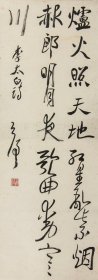 爐火照天地紅星亂紫烟
赧郎明月夜歌曲動寒
川
李太白詩